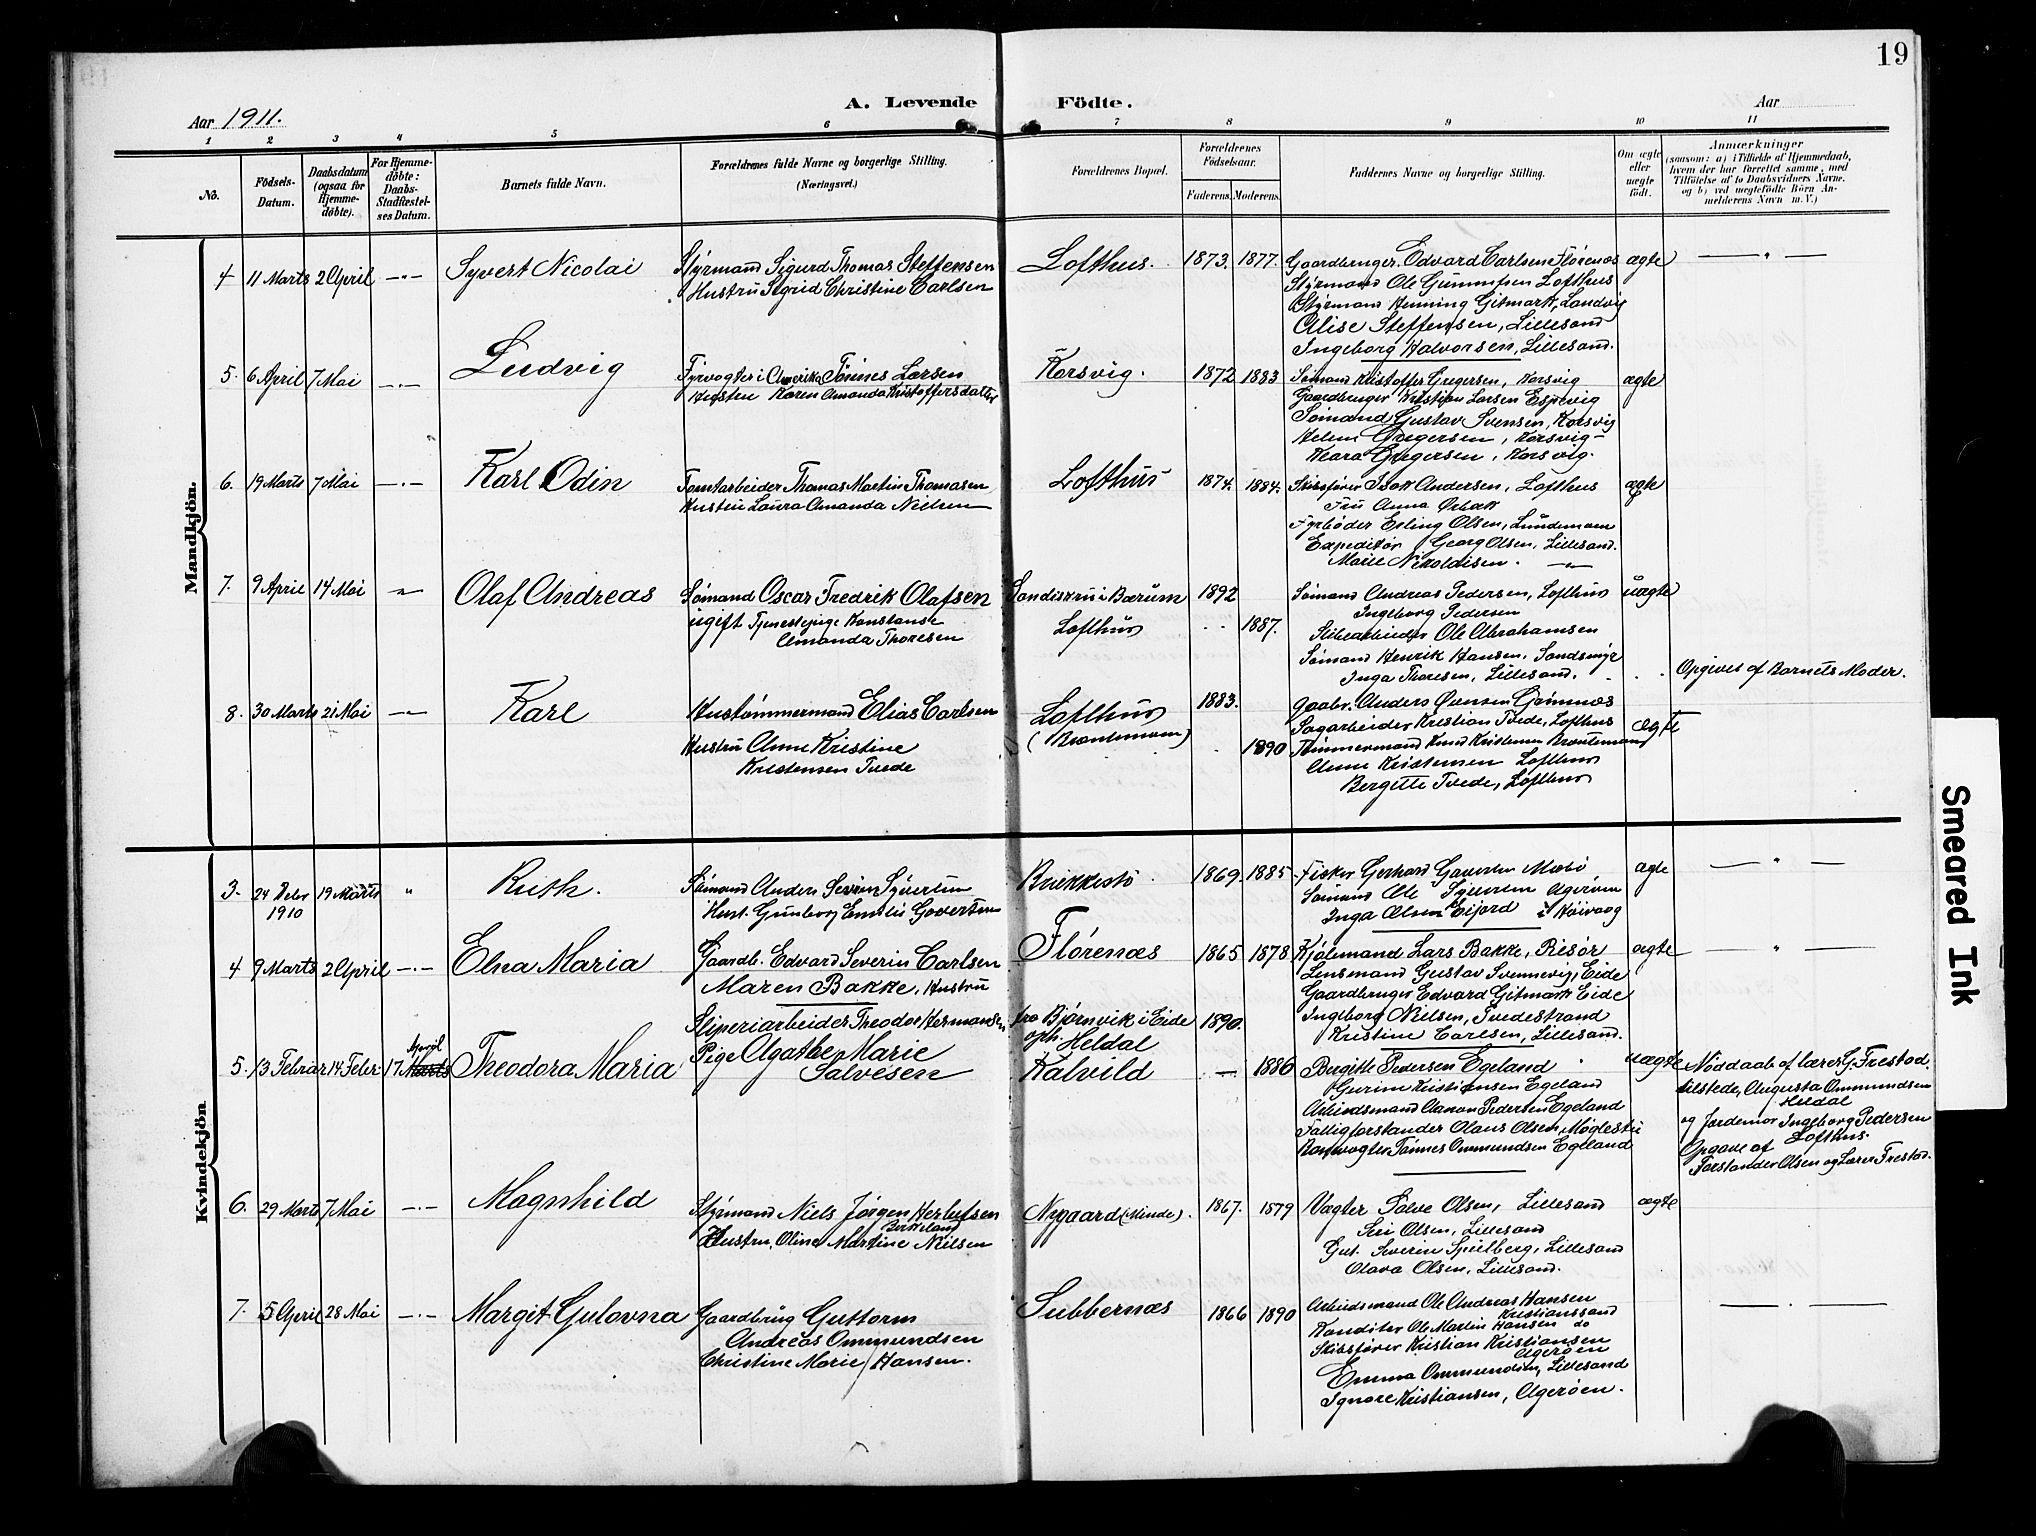 19
A. Levende Födte.
Aar 1911.
Aar
1 2 3 4 5 6 7 8 9 10 11
No.
Födsels-Datum.
Daabsdatum (ogsaa for Hjemme-döbte).
For Hjemme-döbte: Daabs-Stadfæstel-ses Datum.
Barnets fulde Navn.
Forældrenes fulde Navne og borgerlige Stilling.
(Næringsvei.)
Forældrenes Bopæl.
Forældrenes Födselsaar.
Faderens. Moderens.
Faddernes Navne og borgerlige Stilling.
Om ægte eller uægte födt.
Anmærkninger
(saasom: a) i Tilfælde af Hjemmedaab,
hvem der har forrettet samme, med
Tilföielse af to Daabsvidners Navne,
og b) ved uægtefödte Börn An-
melderens Navn m. V.)
Mandkjön.
4 11 Marts 2 April -"- Syvert Nicolai Styrmand Sigurd Thomas Steffensen Lofthus. 1873. 1877. Gaardbruger. Edvard Carlsen Flørenæs ægte — " —
Hustru Sigrid Christine Carlsen Styrmand Ole Gunnufsen Lofthus
Styrmand Henning Gitmark, Landvig
Alise Steffensen, Lillesand
Ingeborg Halvorsen, Lillesand.
5. 6 April 7 Mai -"- Ludvig Fyrvogter i Amerika Tønnes Larsen Korsvig. 1872 1883 Sømand Kristoffer Gregersen, Korsvig ægte
Hustru Karen Amanda Kristoffersdatter Gaardbruger Kristian Larsen Espevig
Sømand Gustav Svensen, Korsvig
Helene Gregersen, Korsvig-
Klara Gregersen, Korsvig.
6. 19 Marts 7 Mai -"- Karl Odin Tomtarbeider Thomas Martin Thomasen Lofthus 1874. 1884. Skibsfører Isak Andersen, Lofthus ægte
Hustru Laura Amanda Nielsen Fru Anna Ørbæk
Fyrbøder Erling Olsen, Lundemoen
Expeditør Georg Olsen, Lillesand.
Marie Nikolaisen. -"-
7. 9 April 14 Mai " Olaf Andreas Sømand Oscar Fredrik Olafsen Sandiskru i Bærum 1892 Sømand Andreas Pedersen, Lofthus uægte
ugift Tjenestepige Konstanse Lofthus .. 1887. Ingeborg Pedersen
Amanda Thoresen Sliberarbeider Ole Abrahamsen
Sømand Henrik Hansen, Sandsmyr
Inga Thoresen, Lillesand. Opgivet af Barnets Moder.
8. 30 Marts 21 Mai -"- Karl Hustømmermand Elias Carlsen Lofthus 1883. Gaabr. Anders Evensen Grømnæs
(Brontemoen) Sagarbeider Kristian Tvede, Lofthus ægte
Hustru Anne Kristine 1890 Tømmermand Knud Kristensen Brontemoen
Kristensen Tvede Anne Kristensen Lofthus
Bergitte Tvede, Lofthus
Kvindekjön
3. 24 Debr 19 Marts " Ruth. Sømand Anders Severin Syvertsen Brekkestø. 1869. 1885 Fisker Gerhard Govertsen ægte — " —
1910 Hust. Gunborg Emilie Govertsen Sømand Ole Syvertsen Agerøen
Inga Olsen Eijord i Høivaag
4 9 Marts 2 April -"- Elna Maria Gaardb. Edvard Severin Carlsen Flørenæs 1865 1878 Kjølemand Lars Bakke, Risør ægte — " —
Maren Bakke, Hustru Lensmand Gustav Svennevig, Eide
Gaardbruger Edvard Gitmark Eide
Ingeborg Nielsen, Tvedestrand
Kristine Carlsen, Lillesand.
Sliperiarbeider Theodor Hermansen fra Bjørnvik i Eide 1890.
oph. Heldal
5. 13 Februar 14 Febr. 17 April Marts Theodora Maria Pige Agathe Marie Kalvild — 1886 Birgitte Pedersen Egeland uægte Nøddaab af lærer G. Frestad.
Salvesen Gurine Kristiansen Egeland tilstede, Augusta Ommundsen
Heldal
Arbeidsmand Aanon Pedersen Egeland og Jordemor Ingeborg Pedersen
Fattigforstander Olaus Olsen, Møglestu Lofthus.
Tønnes Ommundsen Egeland Opgave af
Forstander Olsen og Lærer Frestad.
6. 29 Marts 7 Mai -"- Magnhild Styrmand Niels Jørgen Herlufsen Nygaard (Minde). 1867. 1879 Vagter Salve Olsen, Lillesand ægte
Birkeland Siri Olsen, Lillesand
Hustru, Oline Martine Nielsen Gut. Severin Spilberg, Lillesand
Olava Olsen, Lillesand.
7. 5 April 28 Mai -"- Margit Gulovna Gaardbrug Guttorm Tubbernæs 1866 1890 Arbeidsmand Ole Andreas Hansen — . —
Andreas Ommundsen Kristianssand
Christine Marie Hansen. Kanditer Ole Martin Hansen do
Skibsfører Kristian Kristiansen
Agerøen
Emma Ommundsen, Lillesand
Signore Kristiansen, Agerøen.
Smeared Ink